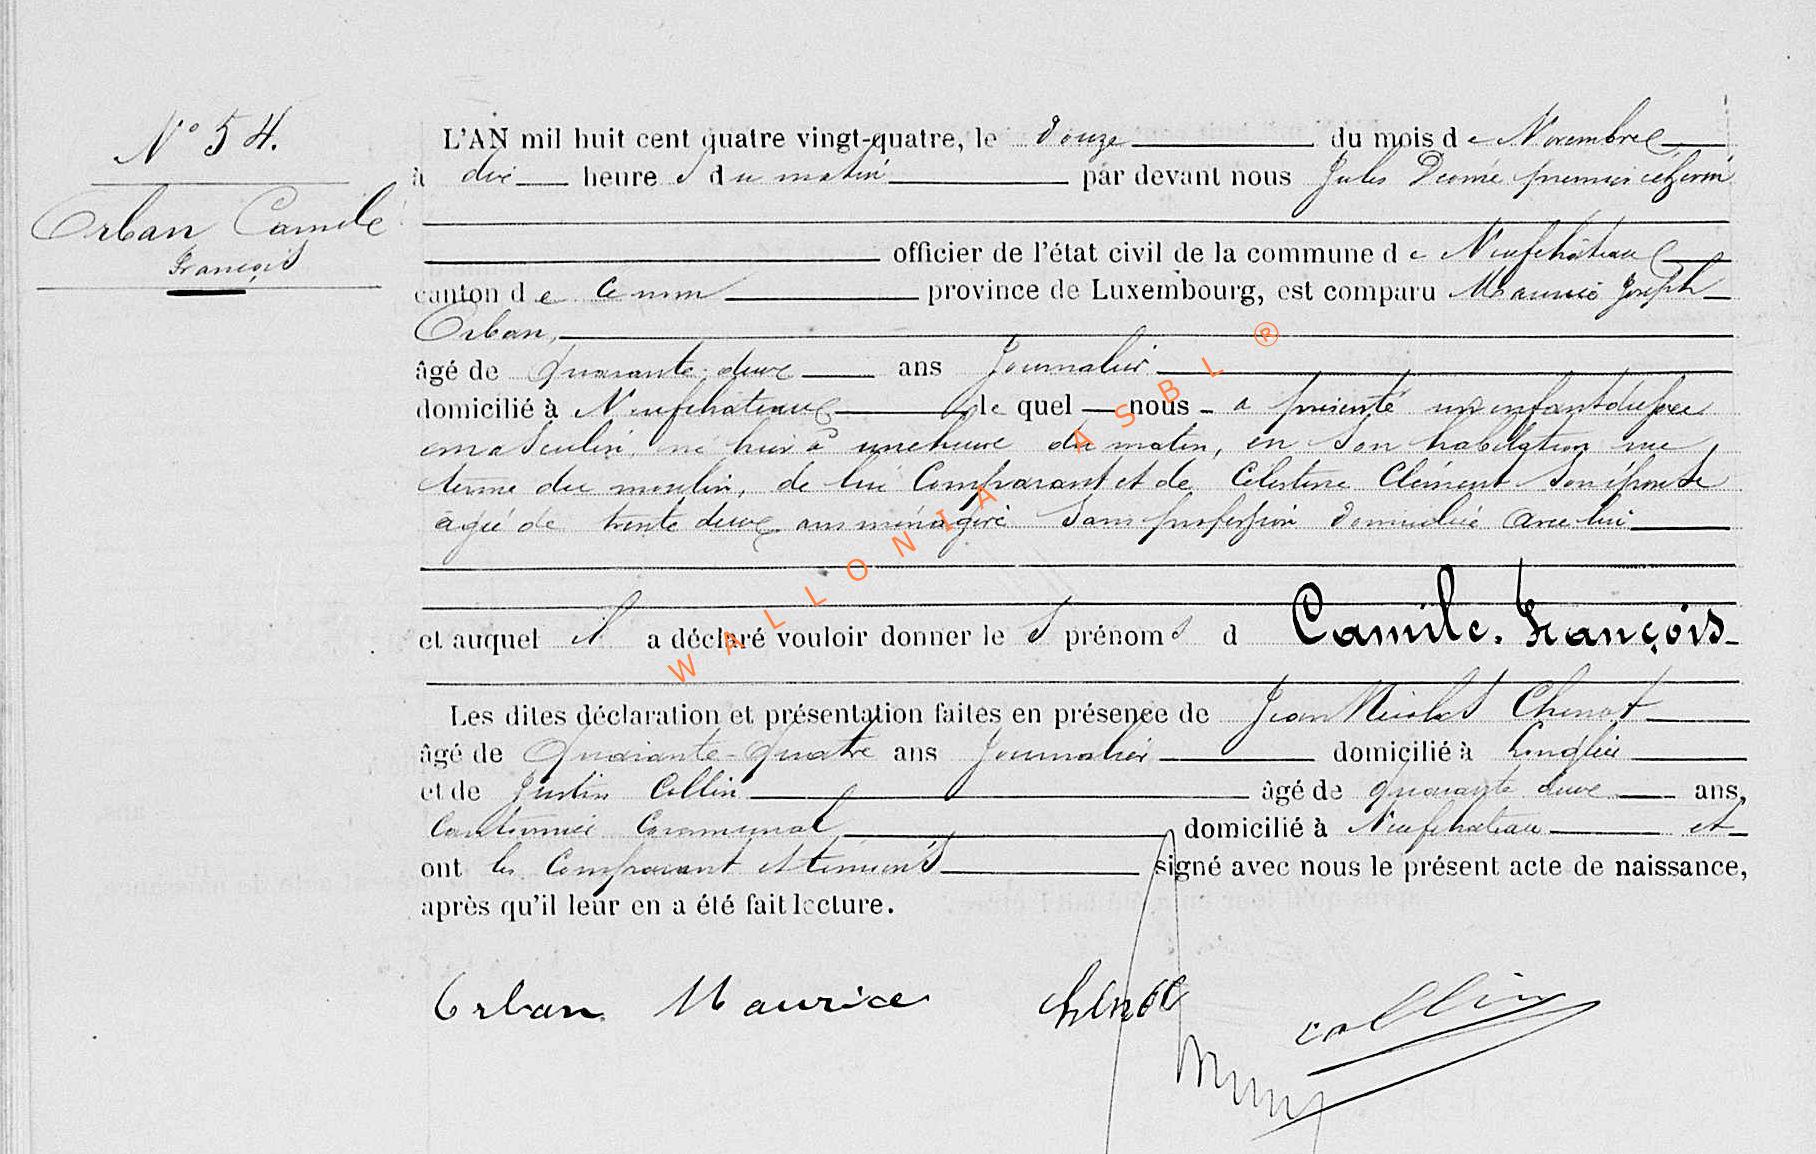 N° 54.
Orban Camile
François
L'AN mil huit cent quatre vingt-quatre, le douze du mois de Novembre
à dix heures du matin par devant nous Jules premier échevin
officier de l'état civil de la commune de Neufchâteau
canton de province de Luxembourg, est comparu Maurice Joseph
Orban,
âgé de Quarante-deux ans Journalier
domicilié à Neufchâteau le quel nous a présenté un enfant du sexe
masculin, né hier à une heure du matin, en son habitation rue
terme du moulin, de lui Comparant et de Celestine Clément son épouse
agée de trente deux ans ménagère sans profession domiciliée avec lui
et auquel il a déclaré vouloir donner les prénoms d Camile. François
Les dites déclaration et présentation faites en présence de Jean Nicolas Chenot
âgé de Quarante-Quatre ans Journalier domicilié à Longlier
et de Justin Collin âgé de quarante deux ans,
Cantonnier Communal domicilié à Neufchateau et
ont les Comparant et témoins signé avec nous le présent acte de naissance,
après qu'il leur en a été fait lecture.
Orban Maurice chenot collin
WALLONIA ASBL ®